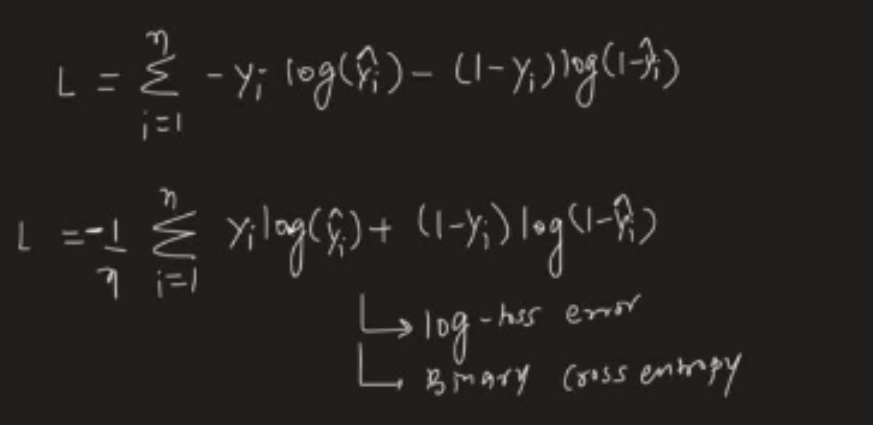 L = Σ_{i=1}^{n} -yᵢ log(ŷᵢ) - (1-yᵢ) log(1-ŷᵢ)
L = -1/n Σ_{i=1}^{n} yᵢ log(ŷᵢ) + (1-yᵢ) log(1-ŷᵢ)
↳ log-loss error
↳ Binary cross entropy